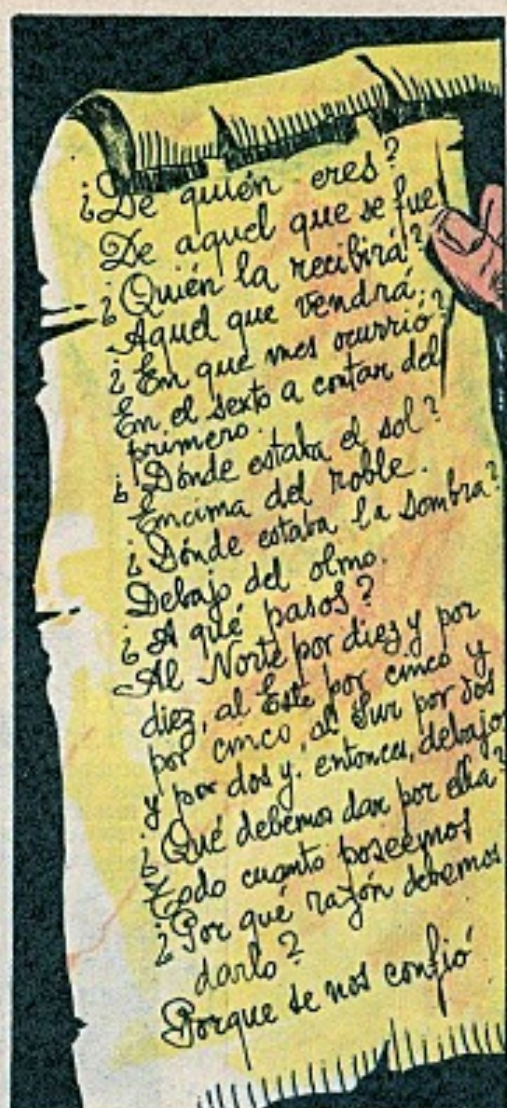 ¿De quién eres?
De aquel que se fue
¿Quién la recibirá?
Aquel que vendrá.
¿En que mes ocurrió?
En el sexto a contar del
primero.
¿Dónde estaba el sol?
Encima del roble.
¿Dónde estaba la sombra?
Debajo del olmo.
¿A qué pasos?
Al Norte por diez y por
diez, al Este por cinco y
por cinco, al Sur por dos
y por dos y. entonces, debajo
¿Qué debemos dar por ella?
Todo cuanto poseeymos
¿Por qué razón debemos
darlo?
Porque se nos confió